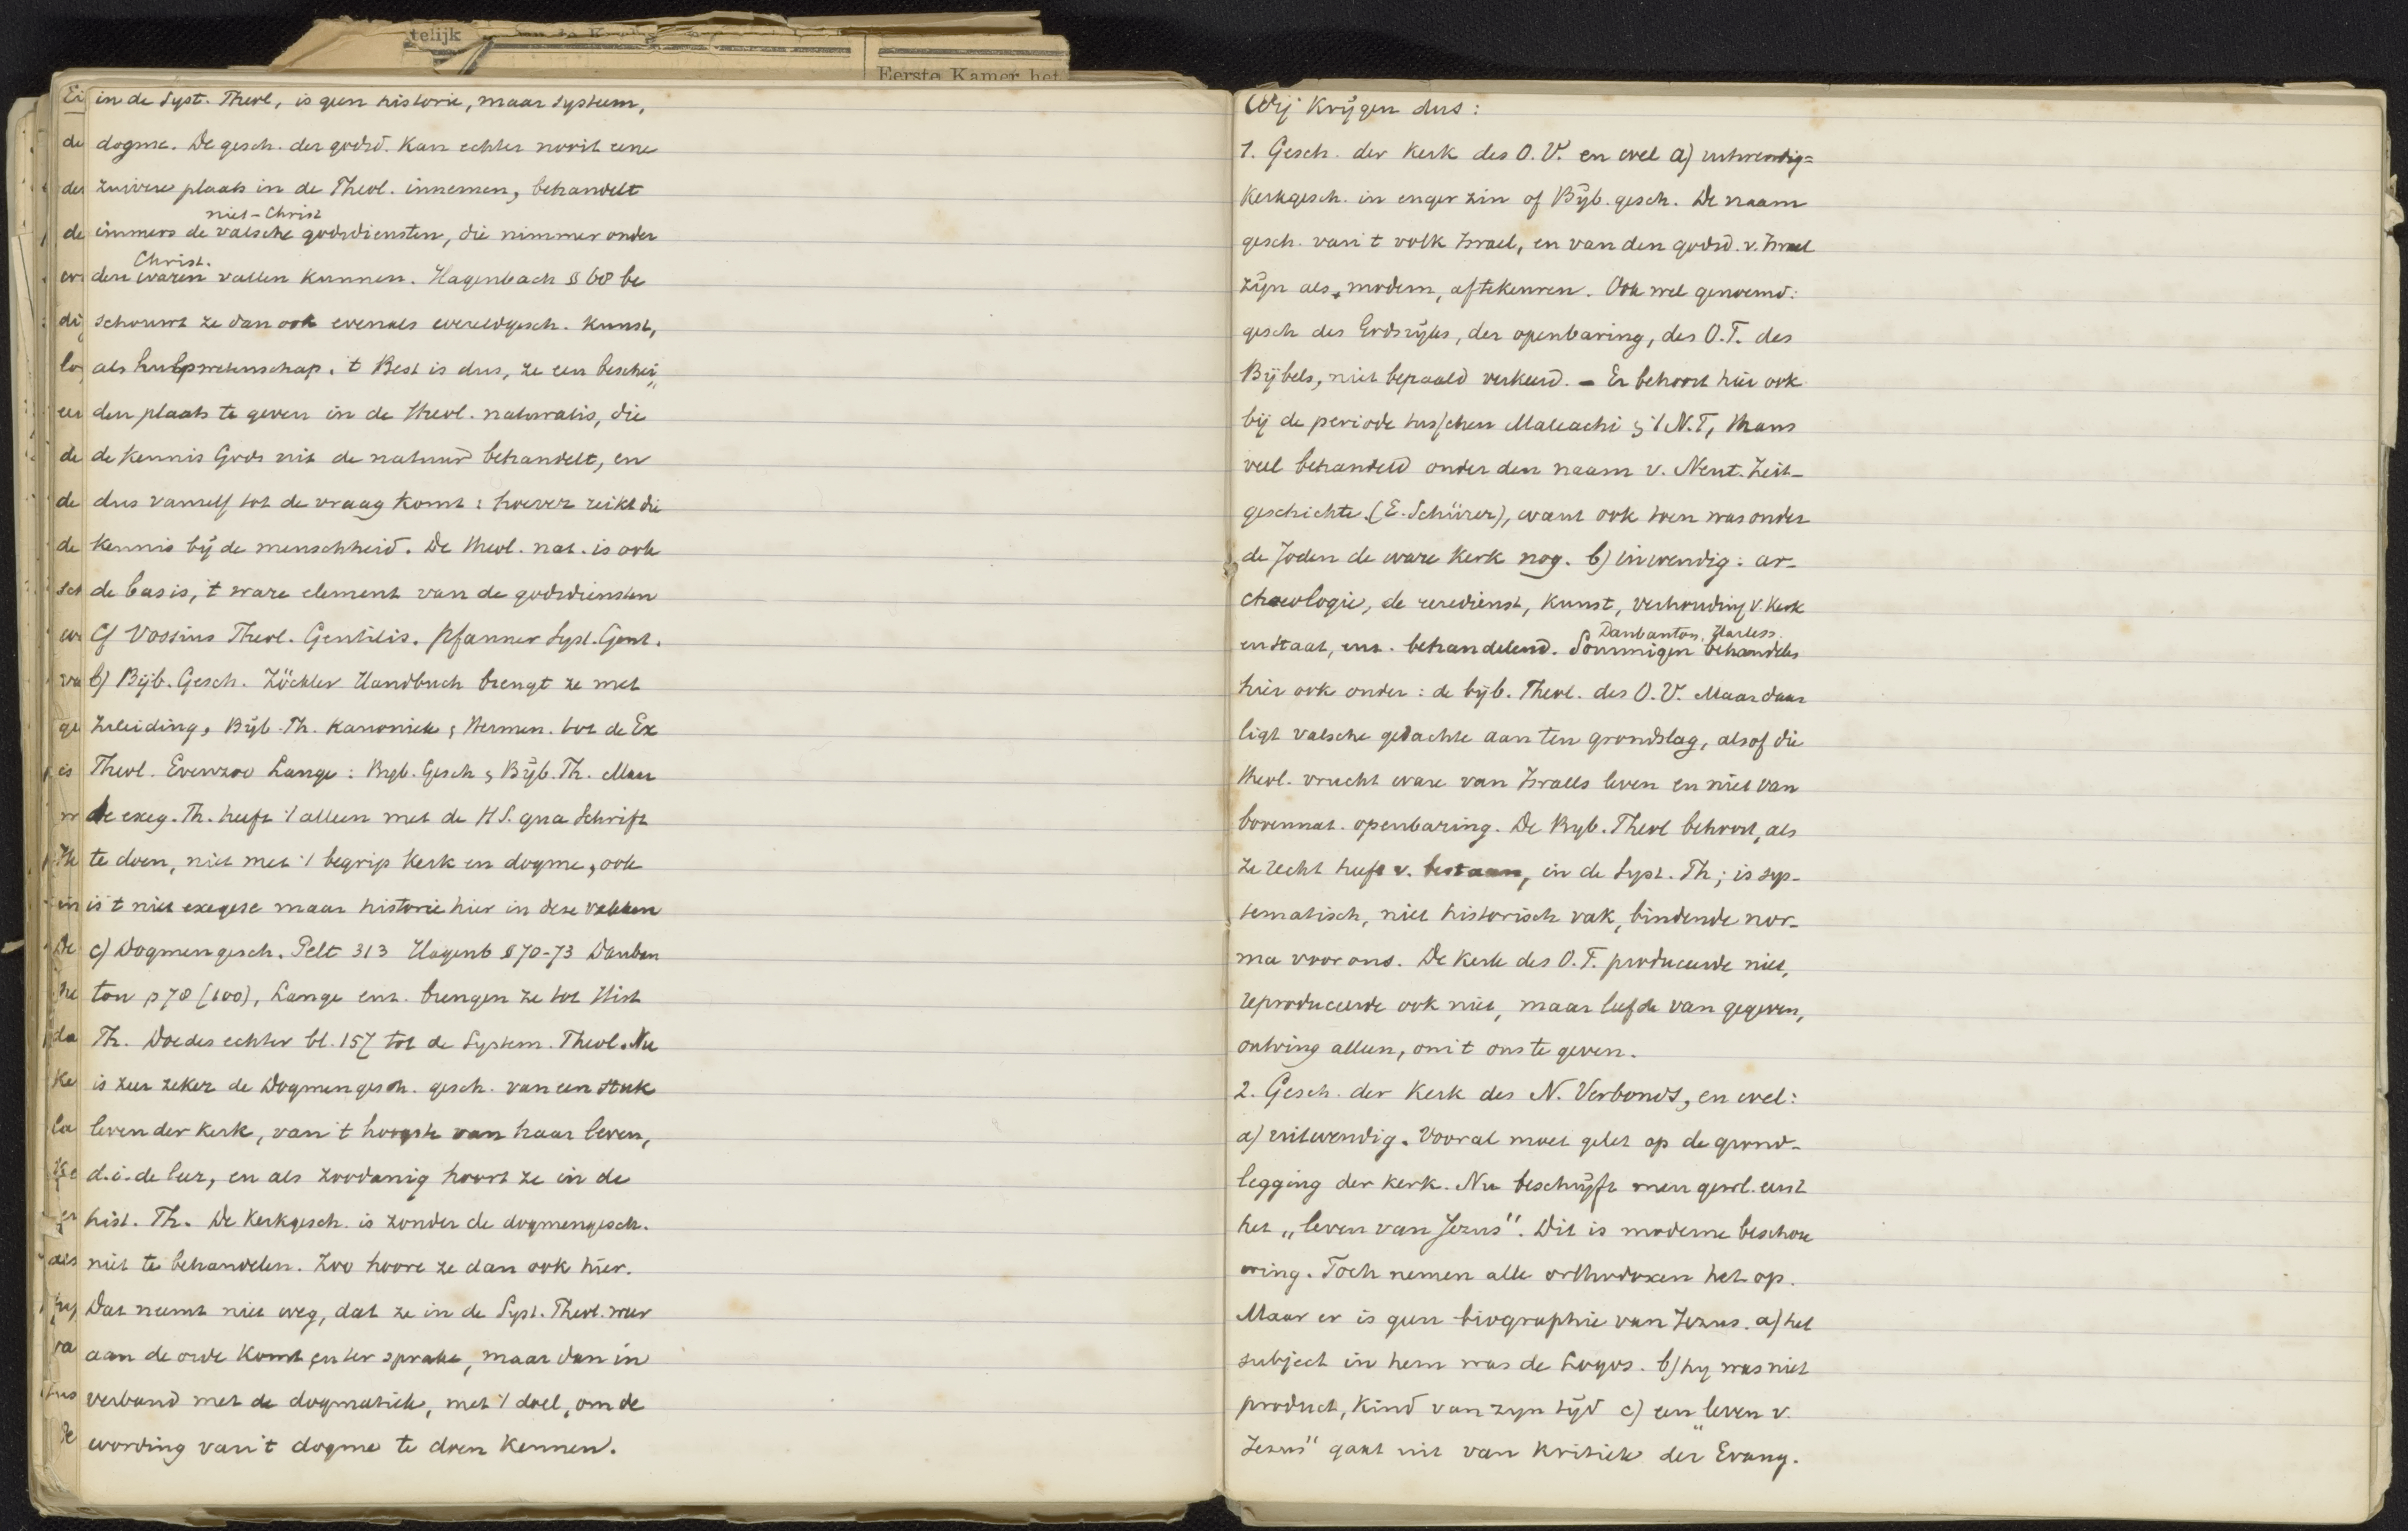 telijk
Eerste Kamer het
in de Syst. Theol, is geen historie, maar systeem,
dogme. De gesch. der godsd. kan echter nooit eene
zuivere plaats in de Theol. innemen, behandelt
niet-Christ
immers de valsche godsdiensten, die nimmer onder
Christ.
den waren vallen kunnen. Hagenbach § 68 be
schouwt ze dan ook evenals wereldgesch. kunst,
als hulpwetenschap. 't Best is dus, ze een beschei„
den plaats te geven in de theol. naturalis, die
de kennis Gods uit de natuur behandelt, en
dus vanself tot de vraag komt: hoever reikt die
kennis bij de menschheid. De theol. nat. is ook
de basis, 't ware element van de godsdiensten
Cf Vossius Theol. Gentilis. Pfanner Syst. Gent.
b) Bijb. Gesch. Zöckler Handbuch brengt ze met
Inleiding, Bijb. Th. Kanoniek & Hermen. tot de Ex
Theol. Evenzoo Lange: Bijb. Gesch & Bijb. Th. Maar
de exeg. Th. heeft 't alleen met de H S. qua Schrift
te doen, niet met 't begrip Kerk en dogme, ook
is 't niet exegese maar historie hier in deze vakken
c) Dogmengesch. Pelt 313 Hagenb § 70-73 Dauban
ton p 78 (100), Lange enz. brengen ze tot Hist
Th. Doedes echter bl. 157 tot de System. Theol. Nu
is zeer zeker de Dogmengesch. gesch. van een stuk
leven der kerk, van 't hoogste van haar leven,
d.i. de leer, en als zoodanig hoort ze in de
hist. Th. De Kerkgesch. is zonder de dogmengesch.
niet te behandelen. Zoo hoore ze dan ook hier.
Dat neemt niet weg, dat ze in de Syst. Theol. weer
aan de orde komt & ter sprake, maar dan in
verband met de dogmatiek, met 't doel, om de
wording van 't dogme te doen kennen.
Wij krijgen dus:
1. Gesch. der Kerk des O.V. en wel a) uitwendig=
Kerkgesch. in enger zin of Bijb. gesch. De naam
gesch. van 't volk Israel, en van den godsd. v. Israel
zijn als modern, aftekeuren. Ook wel genoemd:
gesch des Godsrijks, der openbaring, des O.T. des
Bijbels, niet bepaald verkeerd. – Er behoort hier ook
bij de periode tusschen Maleachi & 't N.T, thans
veel behandeld onder den naam v. Neut. Zeit-
geschichte. (E. Schürer), want ook toen was onder
de Joden de ware kerk nog. b) inwendig: ar-
chaeologie, de eeredienst, kunst, verhouding v. Kerk
Daubanton, Harless.
en staat, enz. behandelend. Sommigen behandelen
hier ook onder: de bijb. Theol. des O.V. Maar daar
ligt valsche gedachte aan ten grondslag, alsof die
theol. vrucht ware van Israels leven en niet van
bovennat. openbaring. De Bijb. Theol behoort, als
ze recht heeft v. bestaan, in de Syst. Th; is sys-
tematisch, niet historisch vak, bindende nor-
ma voor ons. De kerk des O.T. produceerde niet,
reproduceerde ook niet, maar leefde van gegeven,
ontving alleen, om 't ons te geven.
2. Gesch. der Kerk des N. Verbonds, en wel:
a) uitwendig. Vooral moet gelet op de grond-
legging der kerk. Nu beschrijft men gewl. eerst
het „leven van Jezus". Dit is moderne beschou
wing. Toch nemen alle orthodoxen het op.
Maar er is geen biographie van Jezus. a) het
subject in hem was de Logos. b) hij was niet
product, kind van zijn tijd c) een „leven v.
Jezus" gaat uit van kritiek der Evang.